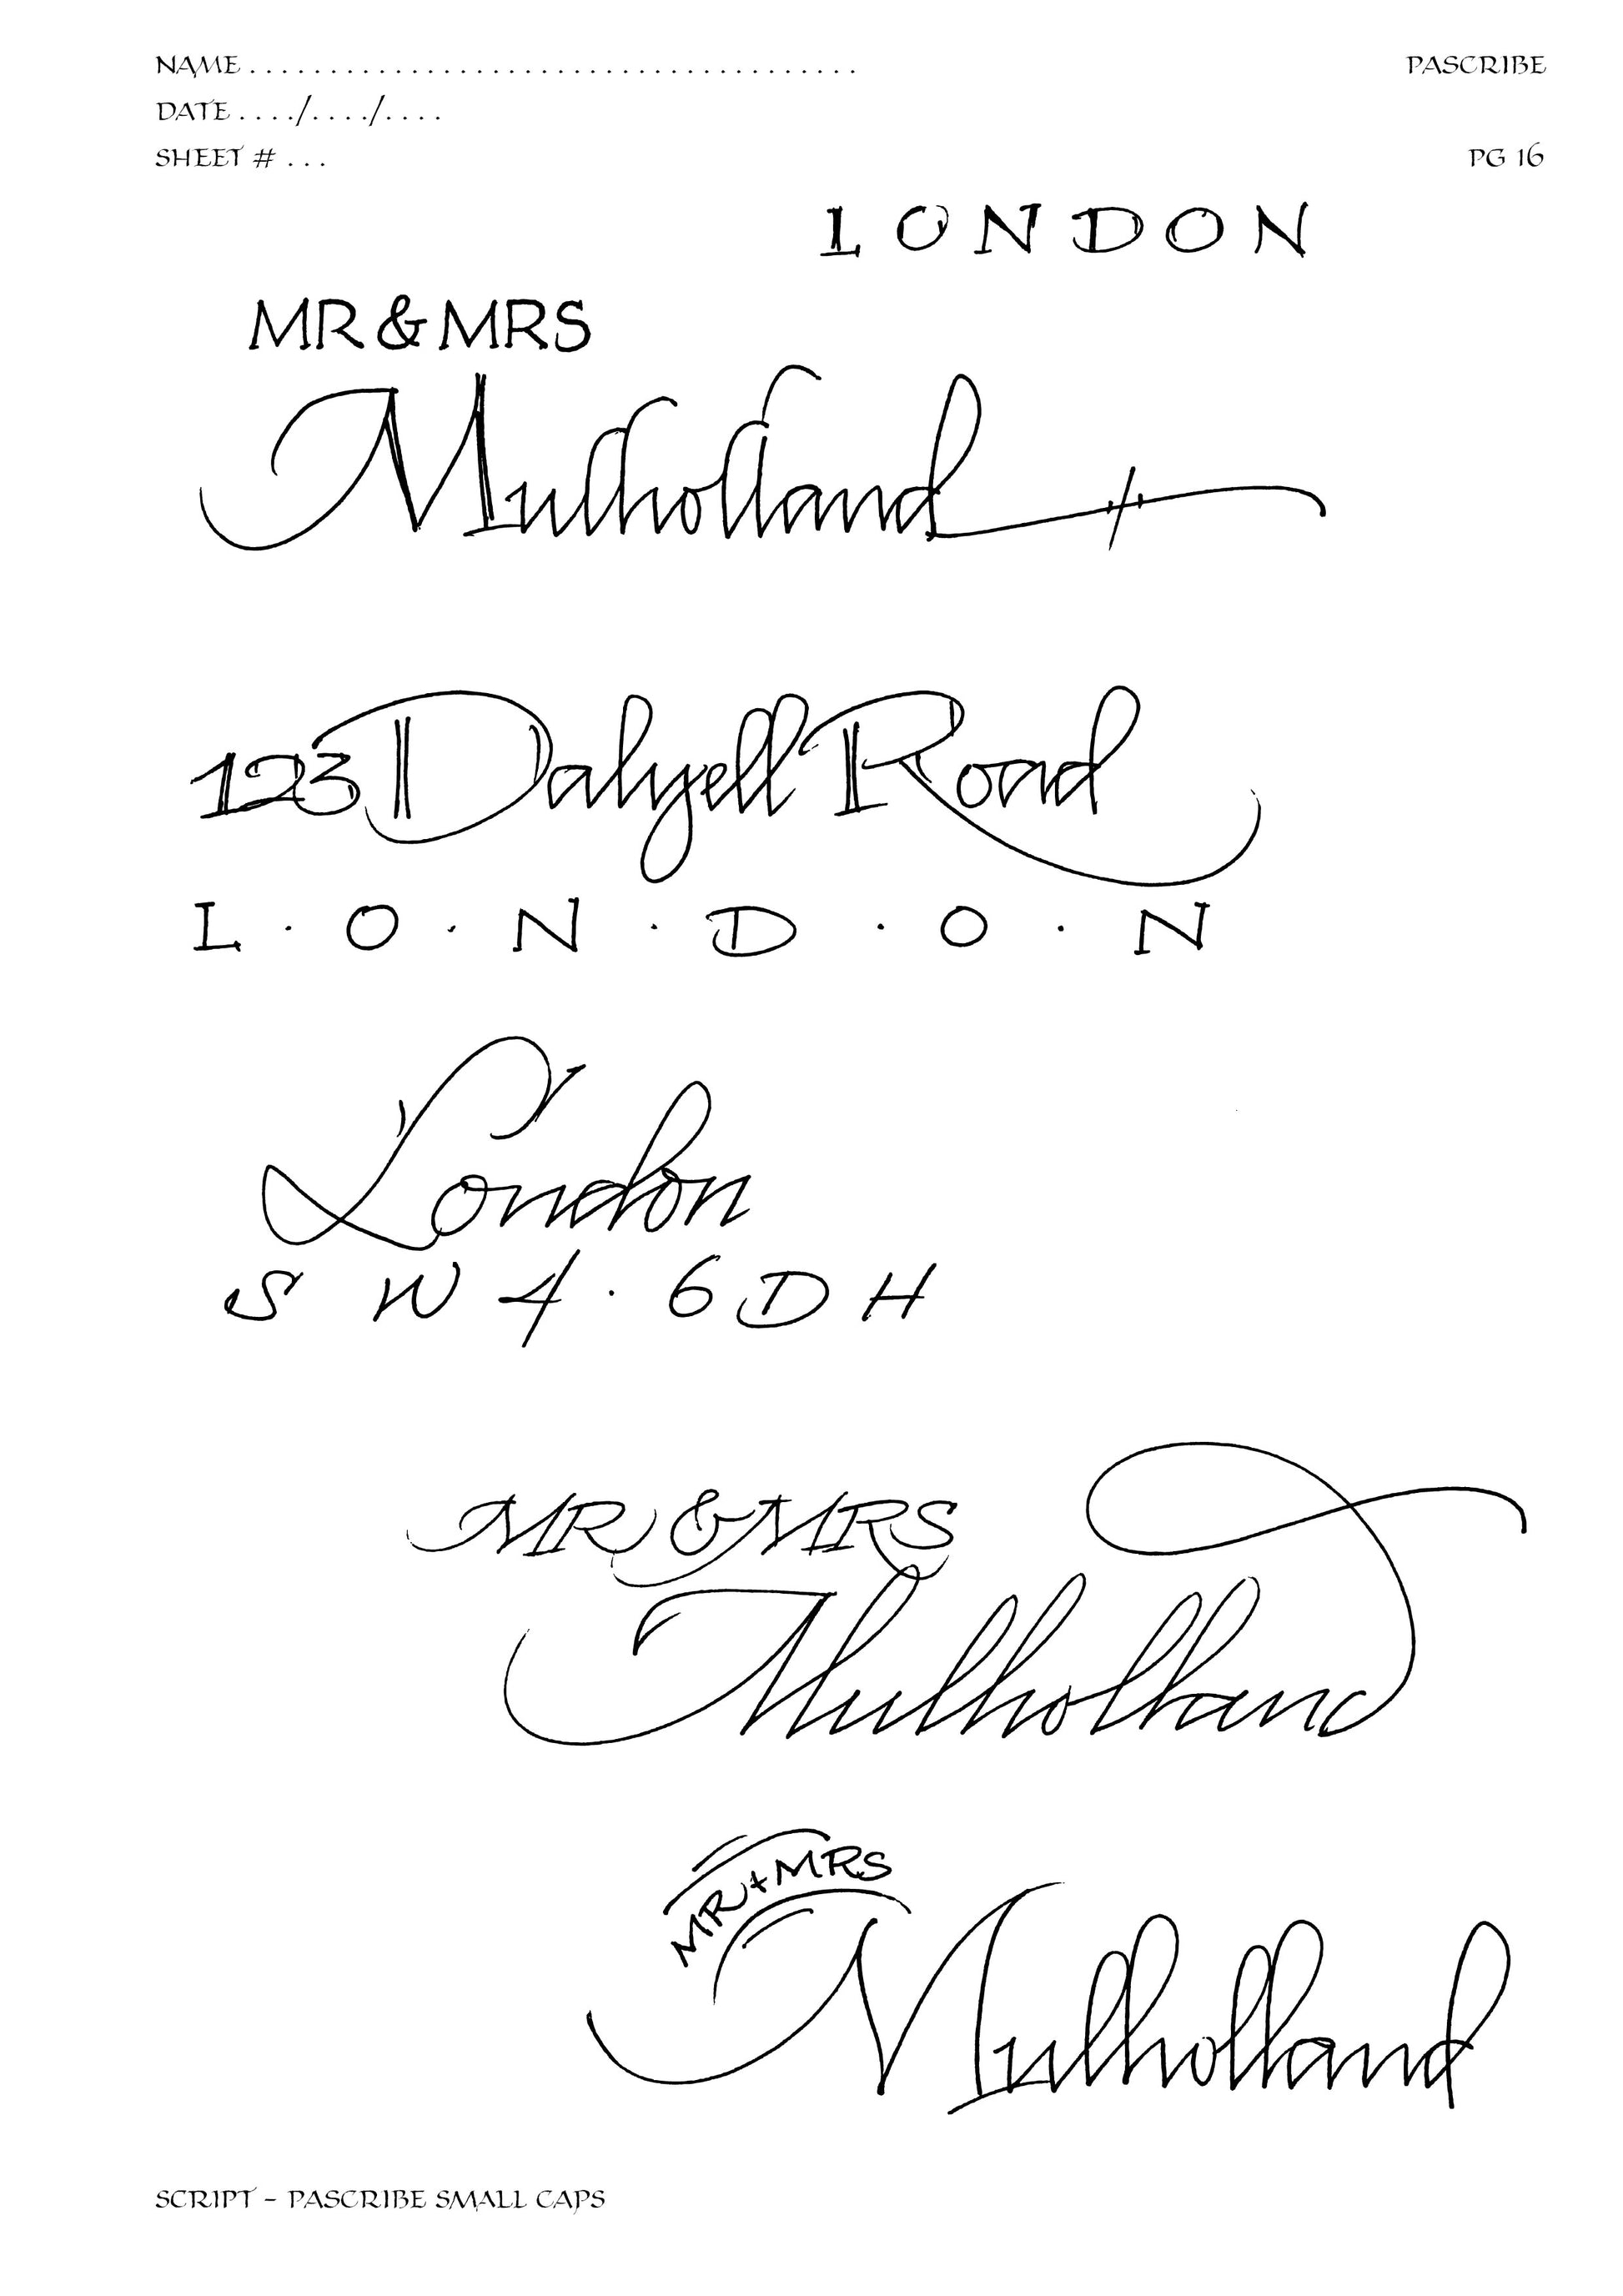 NAME ......................................
PASCRIBE
DATE ..../..../....
SHEET # ...
PG 16
LONDON
MR & MRS
Mulholland
123 Dalyell Road
L · O · N · D · O · N
London
SW4 · 6DH
MR & MRS
Mulholland
MR + MRS
Mulholland
SCRIPT - PASCRIBE SMALL CAPS